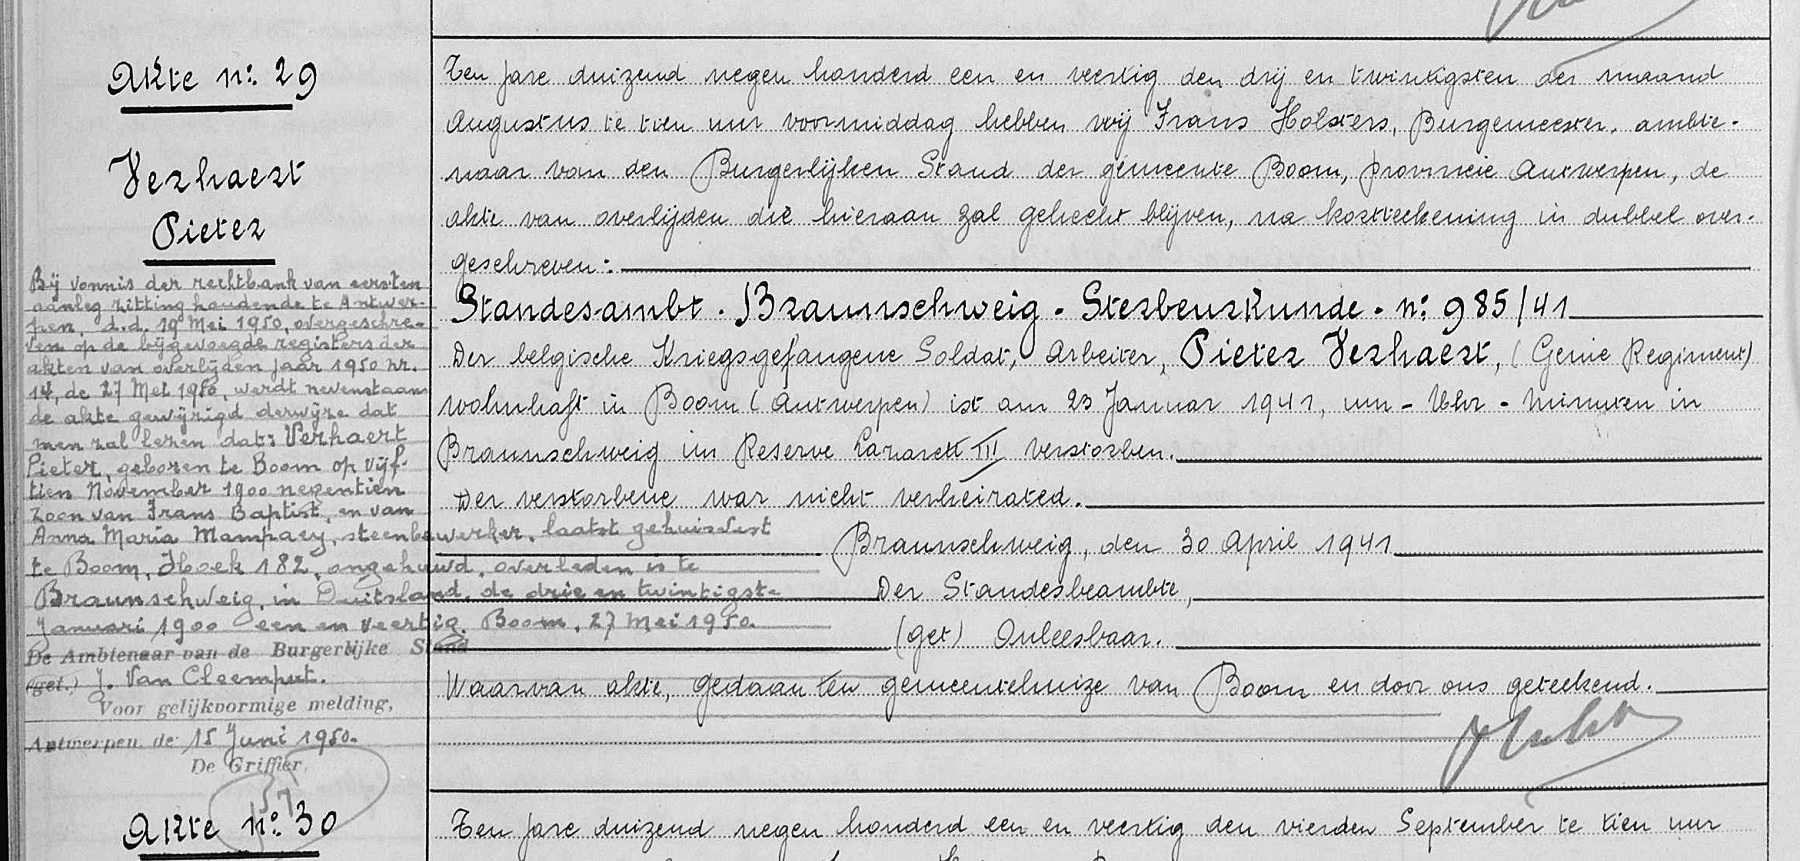 Akte nº 29
Verhaert
Pieter
Bij vonnis der rechtbank van eersten
aanleg zitting houdende te Antwer-
pen, d.d. 19 Mei 1950, overgeschre-
ven op de bijgevoegde registers der
akten van overlijden jaar 1950 nr.
14, de 27 Mei 1950, werdt nevenstaan
de akte gewijzigd derwijze dat
men zal lezen dat: Verhaert
Pieter, geboren te Boom op vijf-
tien November 1900 negentien
zoon van Frans Baptist, en van
Anna Maria Mampaey, steenbewerker, laatst gehuisvest
te Boom, Hoek 182, ongehuwd, overleden is te
Braunschweig, in Duitsland, de drie en twintigste
Januari 1900 een en veertig. Boom, 27 Mei 1950.
De Ambtenaar van de Burgerlijke Stand
(get.) J. Van Cleemput.
Voor gelijkvormige melding,
Antwerpen de 15 Juni 1950.
De Griffier,
Ten jare duizend negen honderd een en veertig den drij en twintigsten der maand
Augustus te tien uur voormiddag hebben wij Frans Holsters, Burgemeester, ambte-
naar van den Burgerlijken Stand der gemeente Boom, provincie Antwerpen, de
akte van overlijden die hieraan zal gehecht blijven, na kortteekening in dubbel over-
geschreven:
Standesambt - Braunschweig - Sterbeurkunde - nº 985/41
Der belgische Kriegsgefangene Soldat, Arbeiter, Pieter Verhaert, (Genie Regiment)
wohnhaft in Boom (Antwerpen) ist am 23 Januar 1941, um - Uhr - Minuten in
Braunschweig im Reserve Lazarett III verstorben.
Der verstorbene war nicht verheirated.
Braunschweig, den 30 April 1941
Der Standesbeambte,
(get) Onleesbaar.
Waarvan akte, gedaan ten gemeentehuize van Boom en door ons geteekend.
Akte nº 30
Ten jare duizend negen honderd een en veertig den vierden September te tien uur